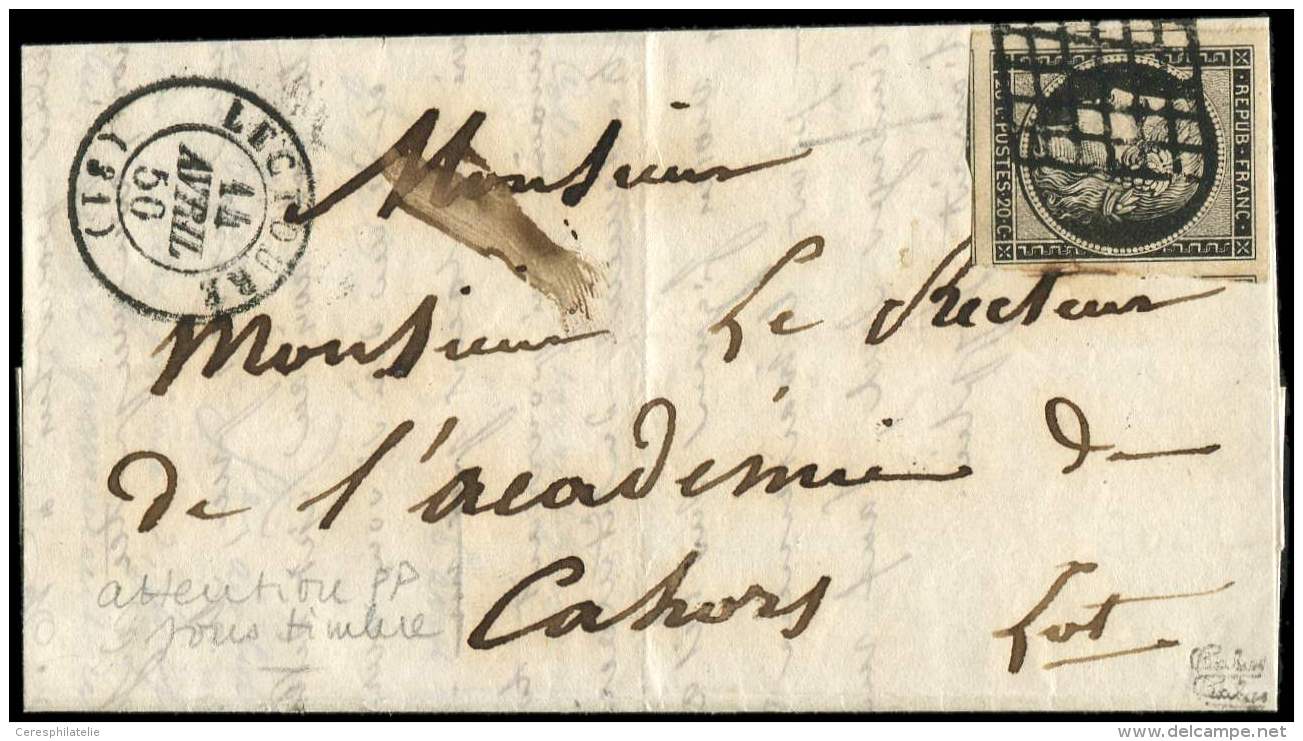 LECTOURE
14
AVRIL
50
(31)
REPUB·FRANC·
20·C·POSTES·20·C·
Monsieur
Monsieur Le Recteur
de l'académie de
Cahors Lot
attention PP
sous timbre
Ceresphilatelie
www.delcampe.net